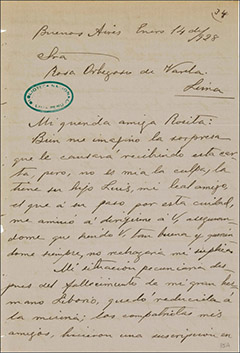 34
Buenos Aires Enero 14 de/928
Sra
Rosa Ortegoso de Varela
Lima
Mi querida amiga Rosita:
Bien me imagino la sorpresa
que le causará recibiendo esta car
ta, pero, no es mia la culpa, la
tiene su hijo Luis, mi leal amigo
el que a su paso por esta ciudad,
me animó a dirigirme á V, asegurán
dome que siendo V, tan buena y
dome siempre, no rechazaría mi súplica
Mi situacion pecuniaria des
pues del fallecimiento de mi gran her
mano Liborio, quedó reducida a
la miseria; los compatriotas mis
amigos, hicieron una suscripcion en